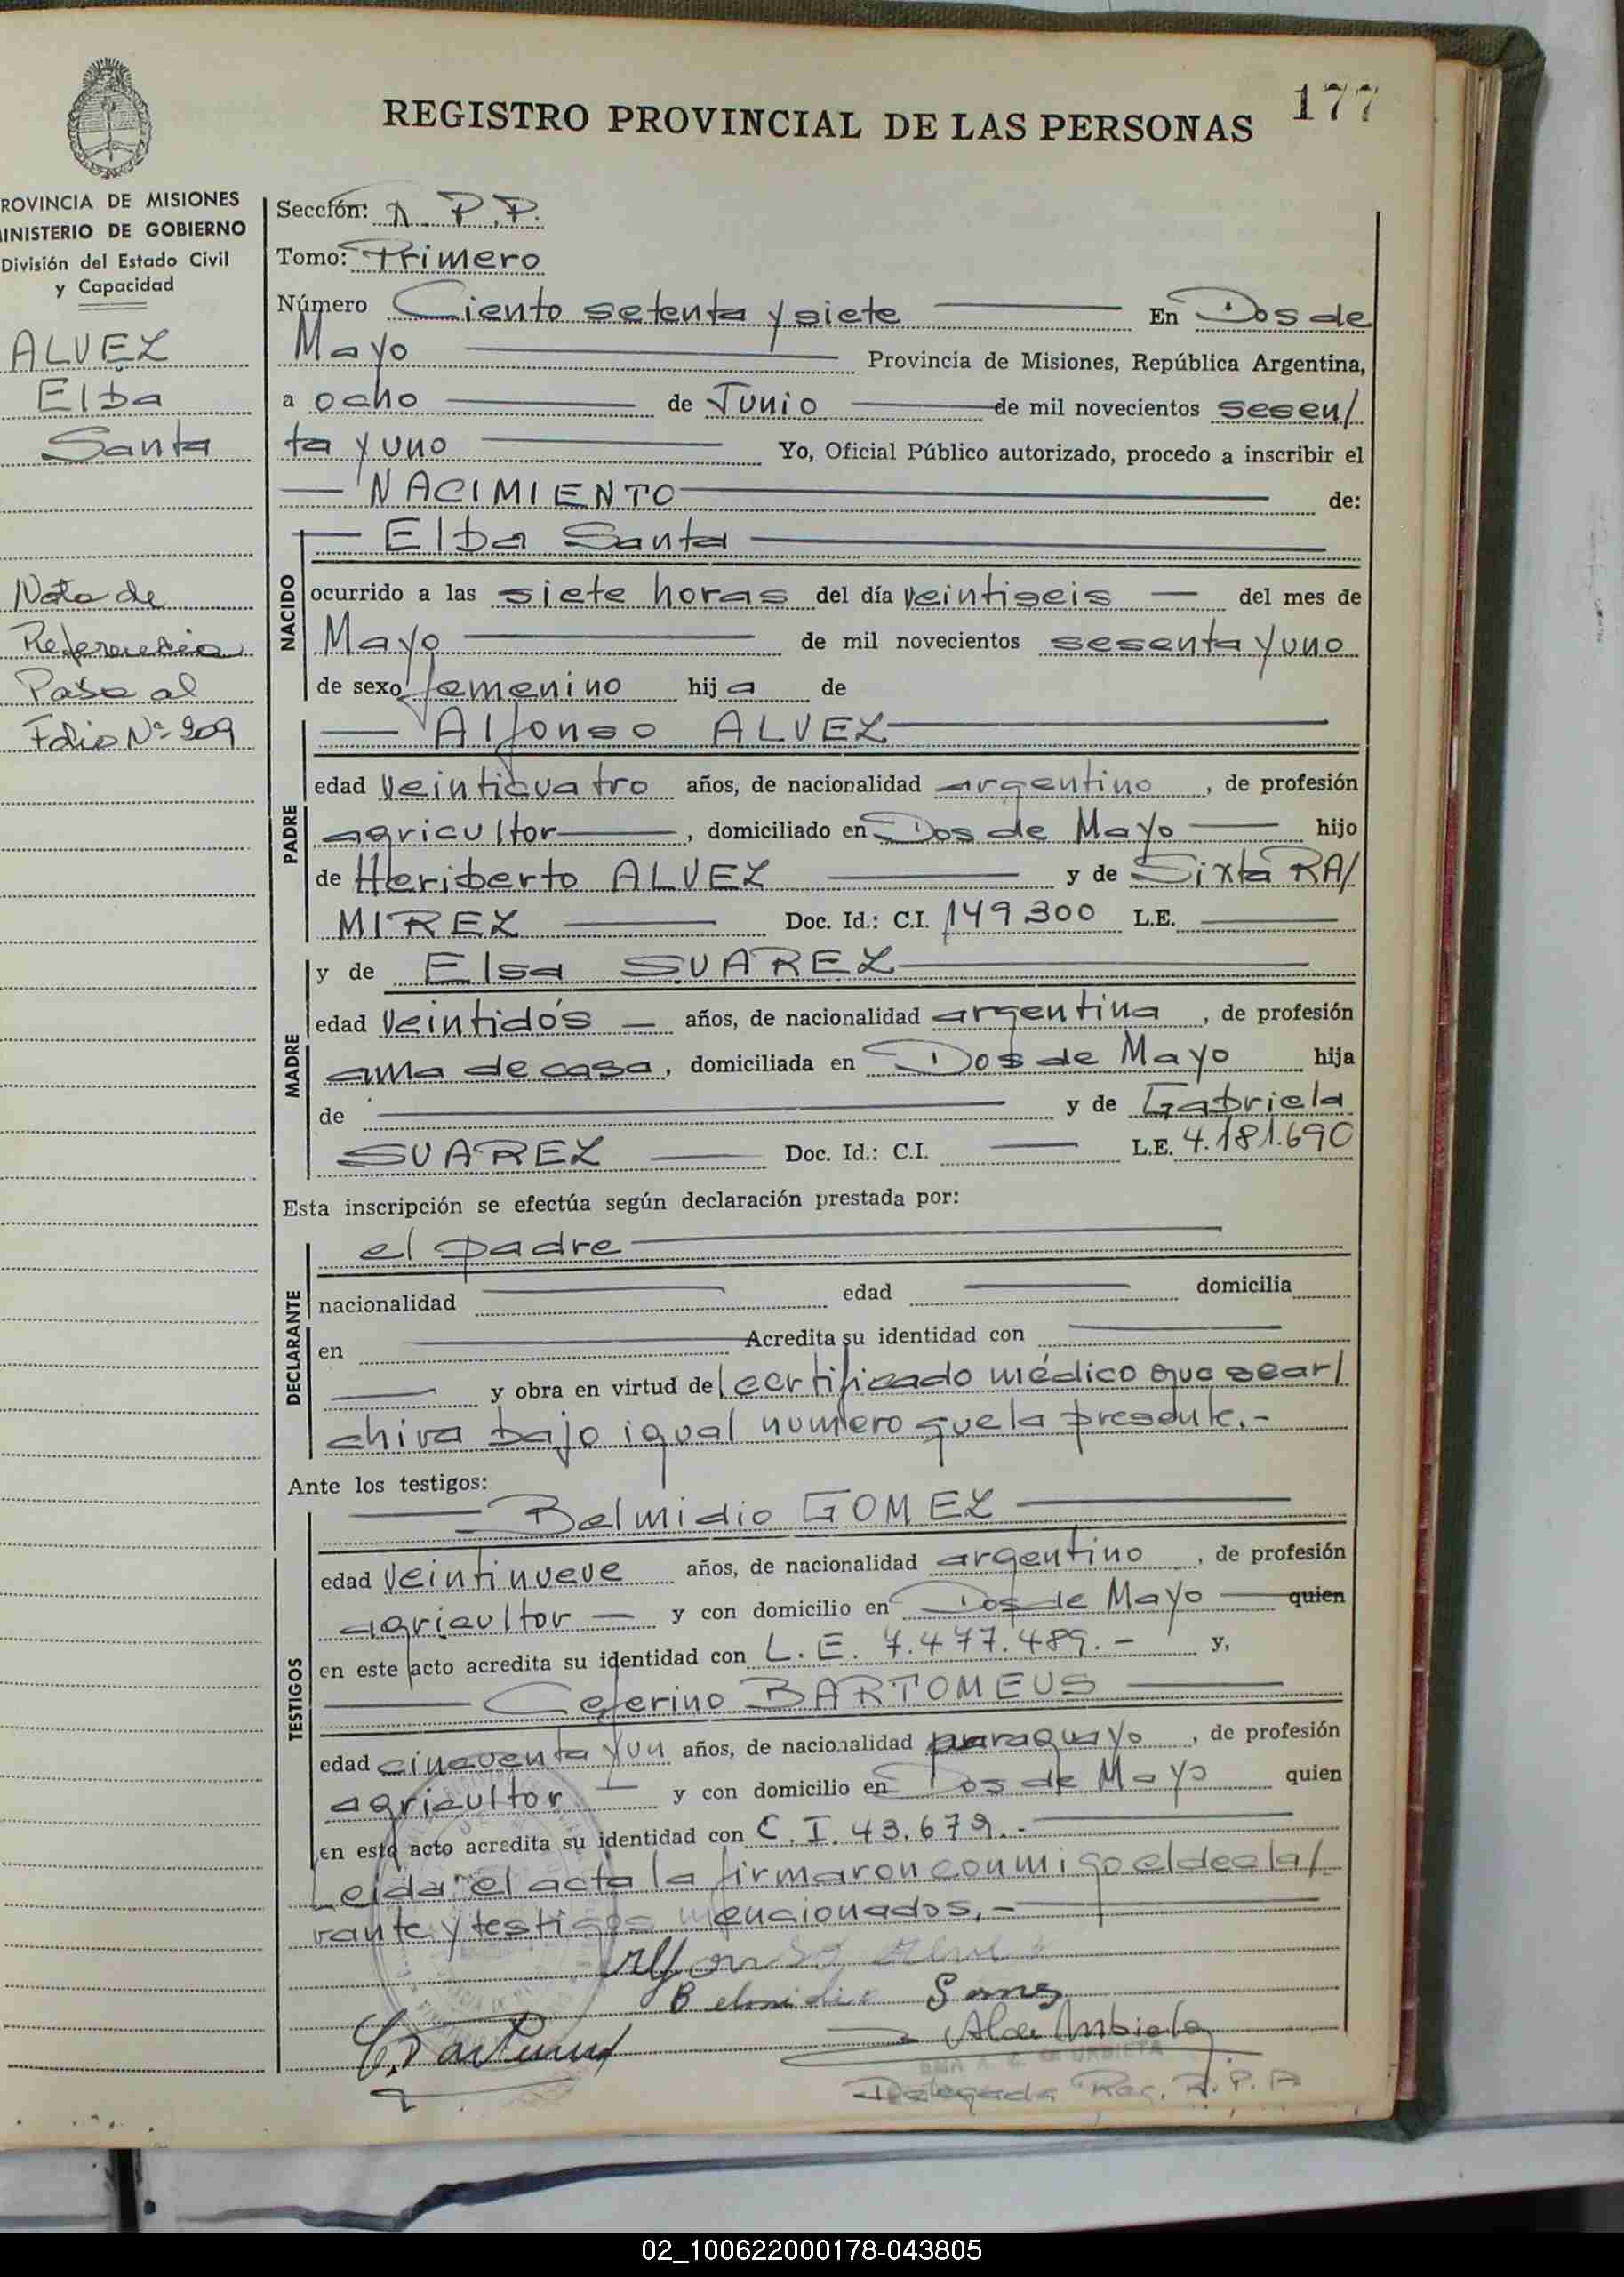 177
REGISTRO PROVINCIAL DE LAS PERSONAS
ROVINCIA DE MISIONES
INISTERIO DE GOBIERNO
División del Estado Civil
y Capacidad
ALVEZ
Elba
Santa
Nota de
Referencia
Pasa al
Folio Nº 209
Sección: A. P.P.
Tomo: Primero
Número Ciento setenta y siete En Dos de
Mayo Provincia de Misiones, República Argentina,
a ocho de Junio de mil novecientos sesen/
ta y uno Yo, Oficial Público autorizado, procedo a inscribir el
NACIMIENTO de:
NACIDO
Elba Santa
ocurrido a las siete horas del día veintiseis del mes de
Mayo de mil novecientos sesenta y uno
de sexo femenino hija de
PADRE
Alfonso ALVEZ
edad veinticuatro años, de nacionalidad argentino, de profesión
agricultor, domiciliado en Dos de Mayo hijo
de Heriberto ALVEZ y de Sixta RA/
MIREZ Doc. Id.: C.I. 149300 L.E.
MADRE
y de Elsa SUAREZ
edad veintidós años, de nacionalidad argentina, de profesión
ama de casa, domiciliada en Dos de Mayo hija
de y de Gabriela
SUAREZ Doc. Id.: C.I. L.E. 4.181.690
Esta inscripción se efectúa según declaración prestada por:
DECLARANTE
el padre
nacionalidad edad domicilia
en Acredita su identidad con
y obra en virtud del certificado médico que se ar/
chiva bajo igual numero que la presente.-
Ante los testigos:
TESTIGOS
Belmidio GOMEZ
edad veintinueve años, de nacionalidad argentino, de profesión
agricultor y con domicilio en Dos de Mayo quien
en este acto acredita su identidad con L.E. 7.477.489.- y,
Ceferino BARTOMEUS
edad cincuenta y un años, de nacionalidad paraguayo, de profesión
agricultor y con domicilio en Dos de Mayo quien
en este acto acredita su identidad con C.I. 43.679.-
Leida el acta la firmaron conmigo el decla/
rante y testigos mencionados.-
Alfonso
Belmidio
Delegada Reg. P.
02_100622000178-043805